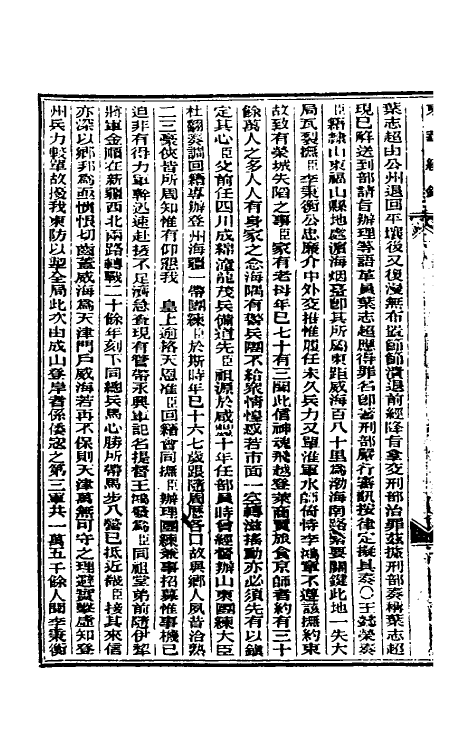 葉志超由公州退回平壤後又復漫無布置節節潰退前經降旨拿交刑部治罪茲據刑部奏稱葉志超
現已解送到部請旨辦理等語革員葉志超應得罪名卽著刑部嚴行審訊按律定擬具奏〇王懿榮奏
臣籍隸山東福山縣地處濱海烟臺卽其所屬東距威海百八十里爲渤海南路緊要關鍵此地一失大
局瓦裂撫臣李秉衡公忠廉介中外交推惟履任未久兵力又單准軍水師倚恃李鴻章不遵該撫約束
故致有榮城失陷之事臣家有老母年已七十有三聞此信神魂飛越登萊商賈旅食京師者約有三十
餘萬人之多人人有身家之念海隅有製兵團不給衆情惶惑若市面一空轉滋搖動亦必須先有以鎭
定其心臣父前任四川成綿瀧龍茂兵備道先臣祖源於咸豐十年任部員時曾經督辦山東團練大臣
杜翮奏調回籍專辦登州海疆一帶團練臣於斯時年已十六七歲跟隨周歷各口故與鄉人夙昔洽熟
二三豪俠皆所周知惟有仰懇我 皇上逾格天恩准臣回籍會同撫臣辦理團練兼事招募惟事機已
迫非有得力軍幹迅速赴援不足濟急查現有管帶永興軍記名提督王鴻發爲臣同祖堂弟前隨伊犁
將軍金順在新疆西北兩路轉戰二十餘年刻下同總兵馬心勝所帶馬步八營已抵近畿臣接其來信
亦深以鄉邦爲虛憤恨切齒蓋威海爲天津門戶威海若再不保則天津萬無可守之理避實擊虛知登
州兵力較單故擾我東防以牽全局此次由成山登岸者係倭寇之第三軍共一萬五千餘人聞李秉衡